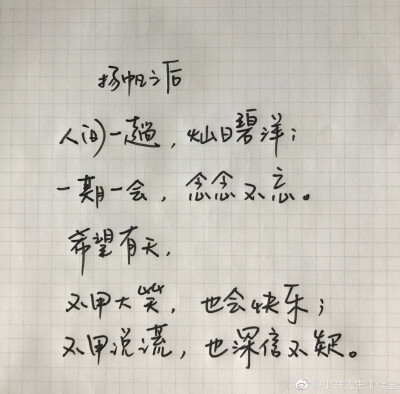 扬帆之后
人间一趟，灿日碧洋；
一期一会，念念不忘。
希望有天，
不用大笑，也会快乐；
不用说谎，也深信不疑。